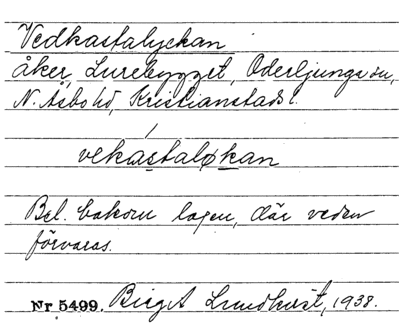 Vedkastalyckan
åker, Lurebygget, Oderljunga sn,
N. Åsbo hd, Kristianstads l.
vekastaløkan
Bel. bakom logen, där veden
förvaras.
Nr 5499. Birgit Lundkvist, 1938.